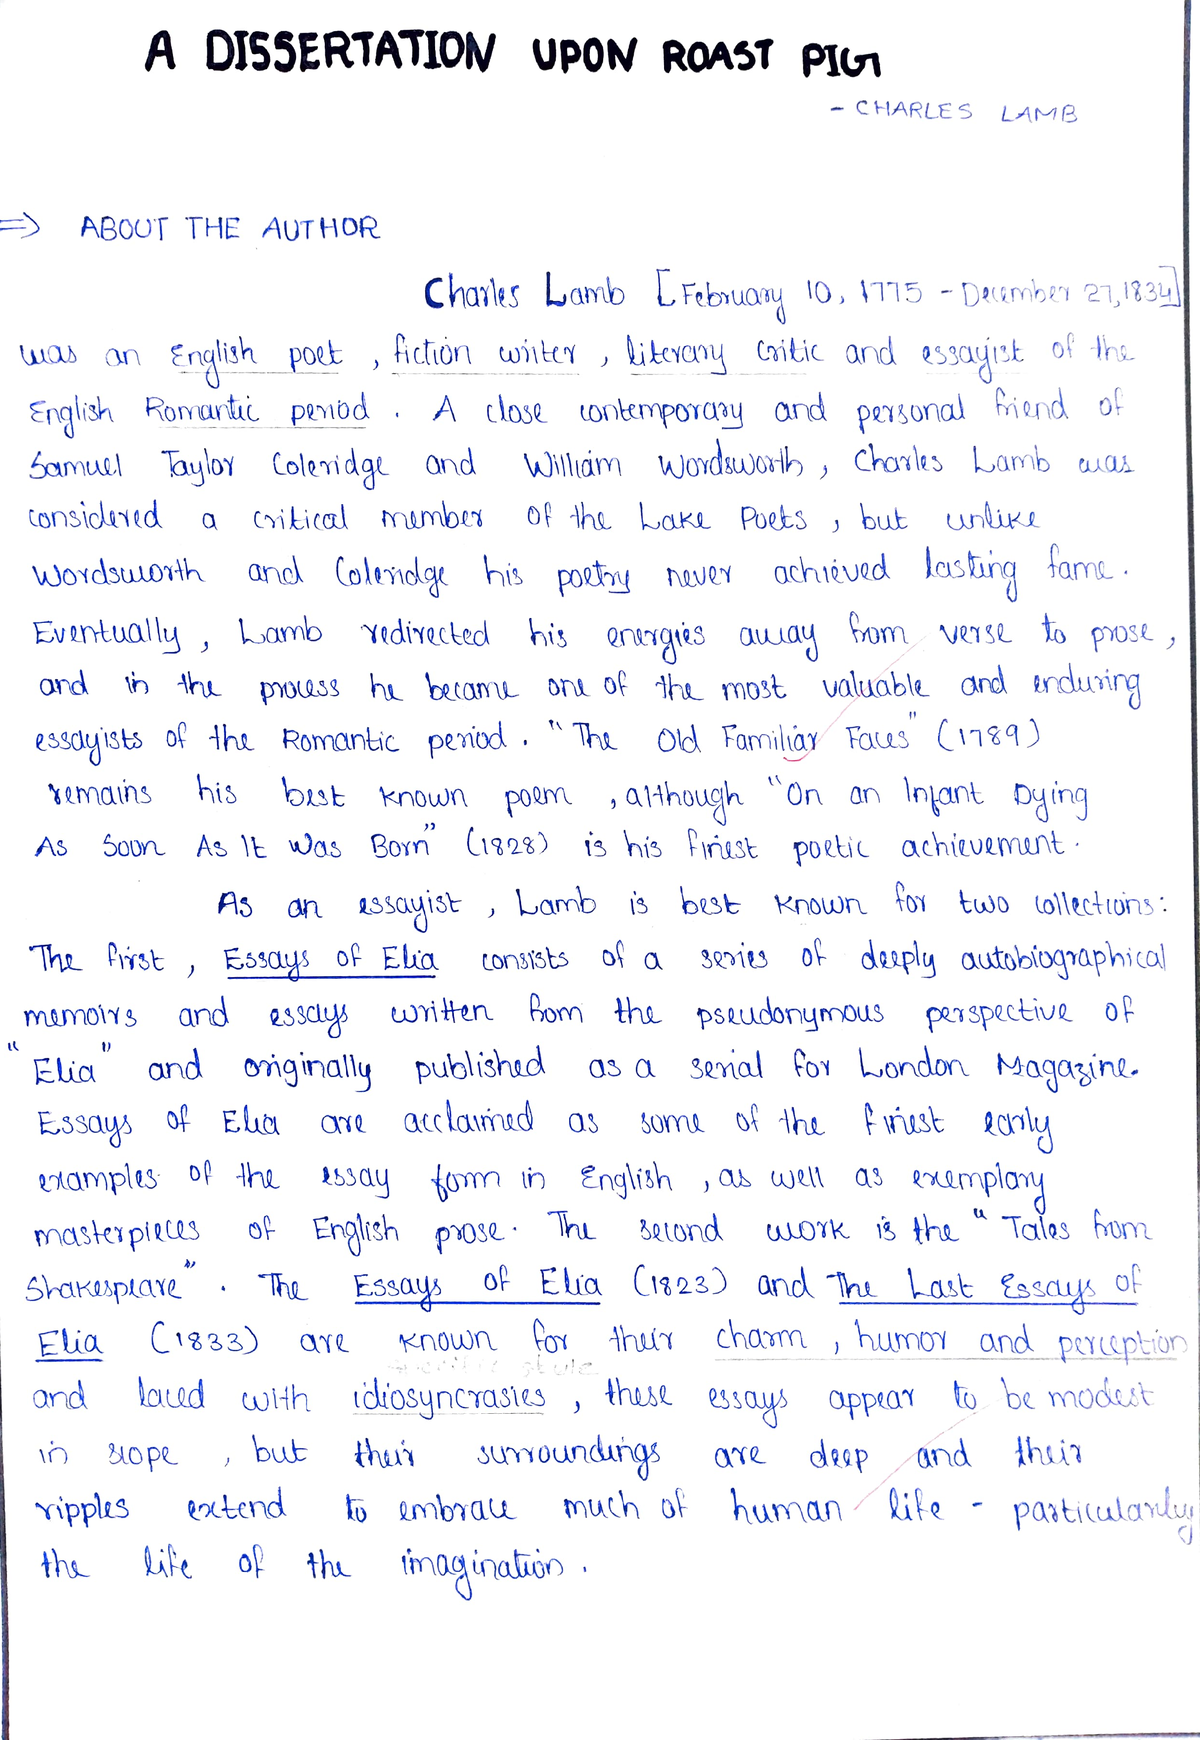 A DISSERTATION UPON ROAST PIG
- CHARLES LAMB
=> ABOUT THE AUTHOR
Charles Lamb [February 10, 1775 - December 27, 1834]
was an English poet, fiction writer, literary critic and essayist of the
English Romantic period. A close contemporary and personal friend of
Samuel Taylor Coleridge and William Wordsworth, Charles Lamb was
considered a critical member of the Lake Poets, but unlike
Wordsworth and Coleridge his poetry never achieved lasting fame.
Eventually, Lamb redirected his energies away from verse to prose,
and in the process he became one of the most valuable and enduring
essayists of the Romantic period. "The Old Familiar Faces" (1789)
remains his best known poem, although "On an Infant Dying
As Soon As It Was Born" (1828) is his finest poetic achievement.
As an essayist, Lamb is best known for two collections:
The first, Essays of Elia consists of a series of deeply autobiographical
memoirs and essays written from the pseudonymous perspective of
"Elia" and originally published as a serial for London Magazine.
Essays of Elia are acclaimed as some of the finest early
examples of the essay form in English, as well as exemplary
masterpieces of English prose. The second work is the "Tales from
Shakespeare". The Essays of Elia (1823) and The Last Essays of
Elia (1833) are known for their charm, humor and perception
and laced with idiosyncrasies, these essays appear to be modest
in scope, but their surroundings are deep and their
ripples extend to embrace much of human life - particularly
the life of the imagination.